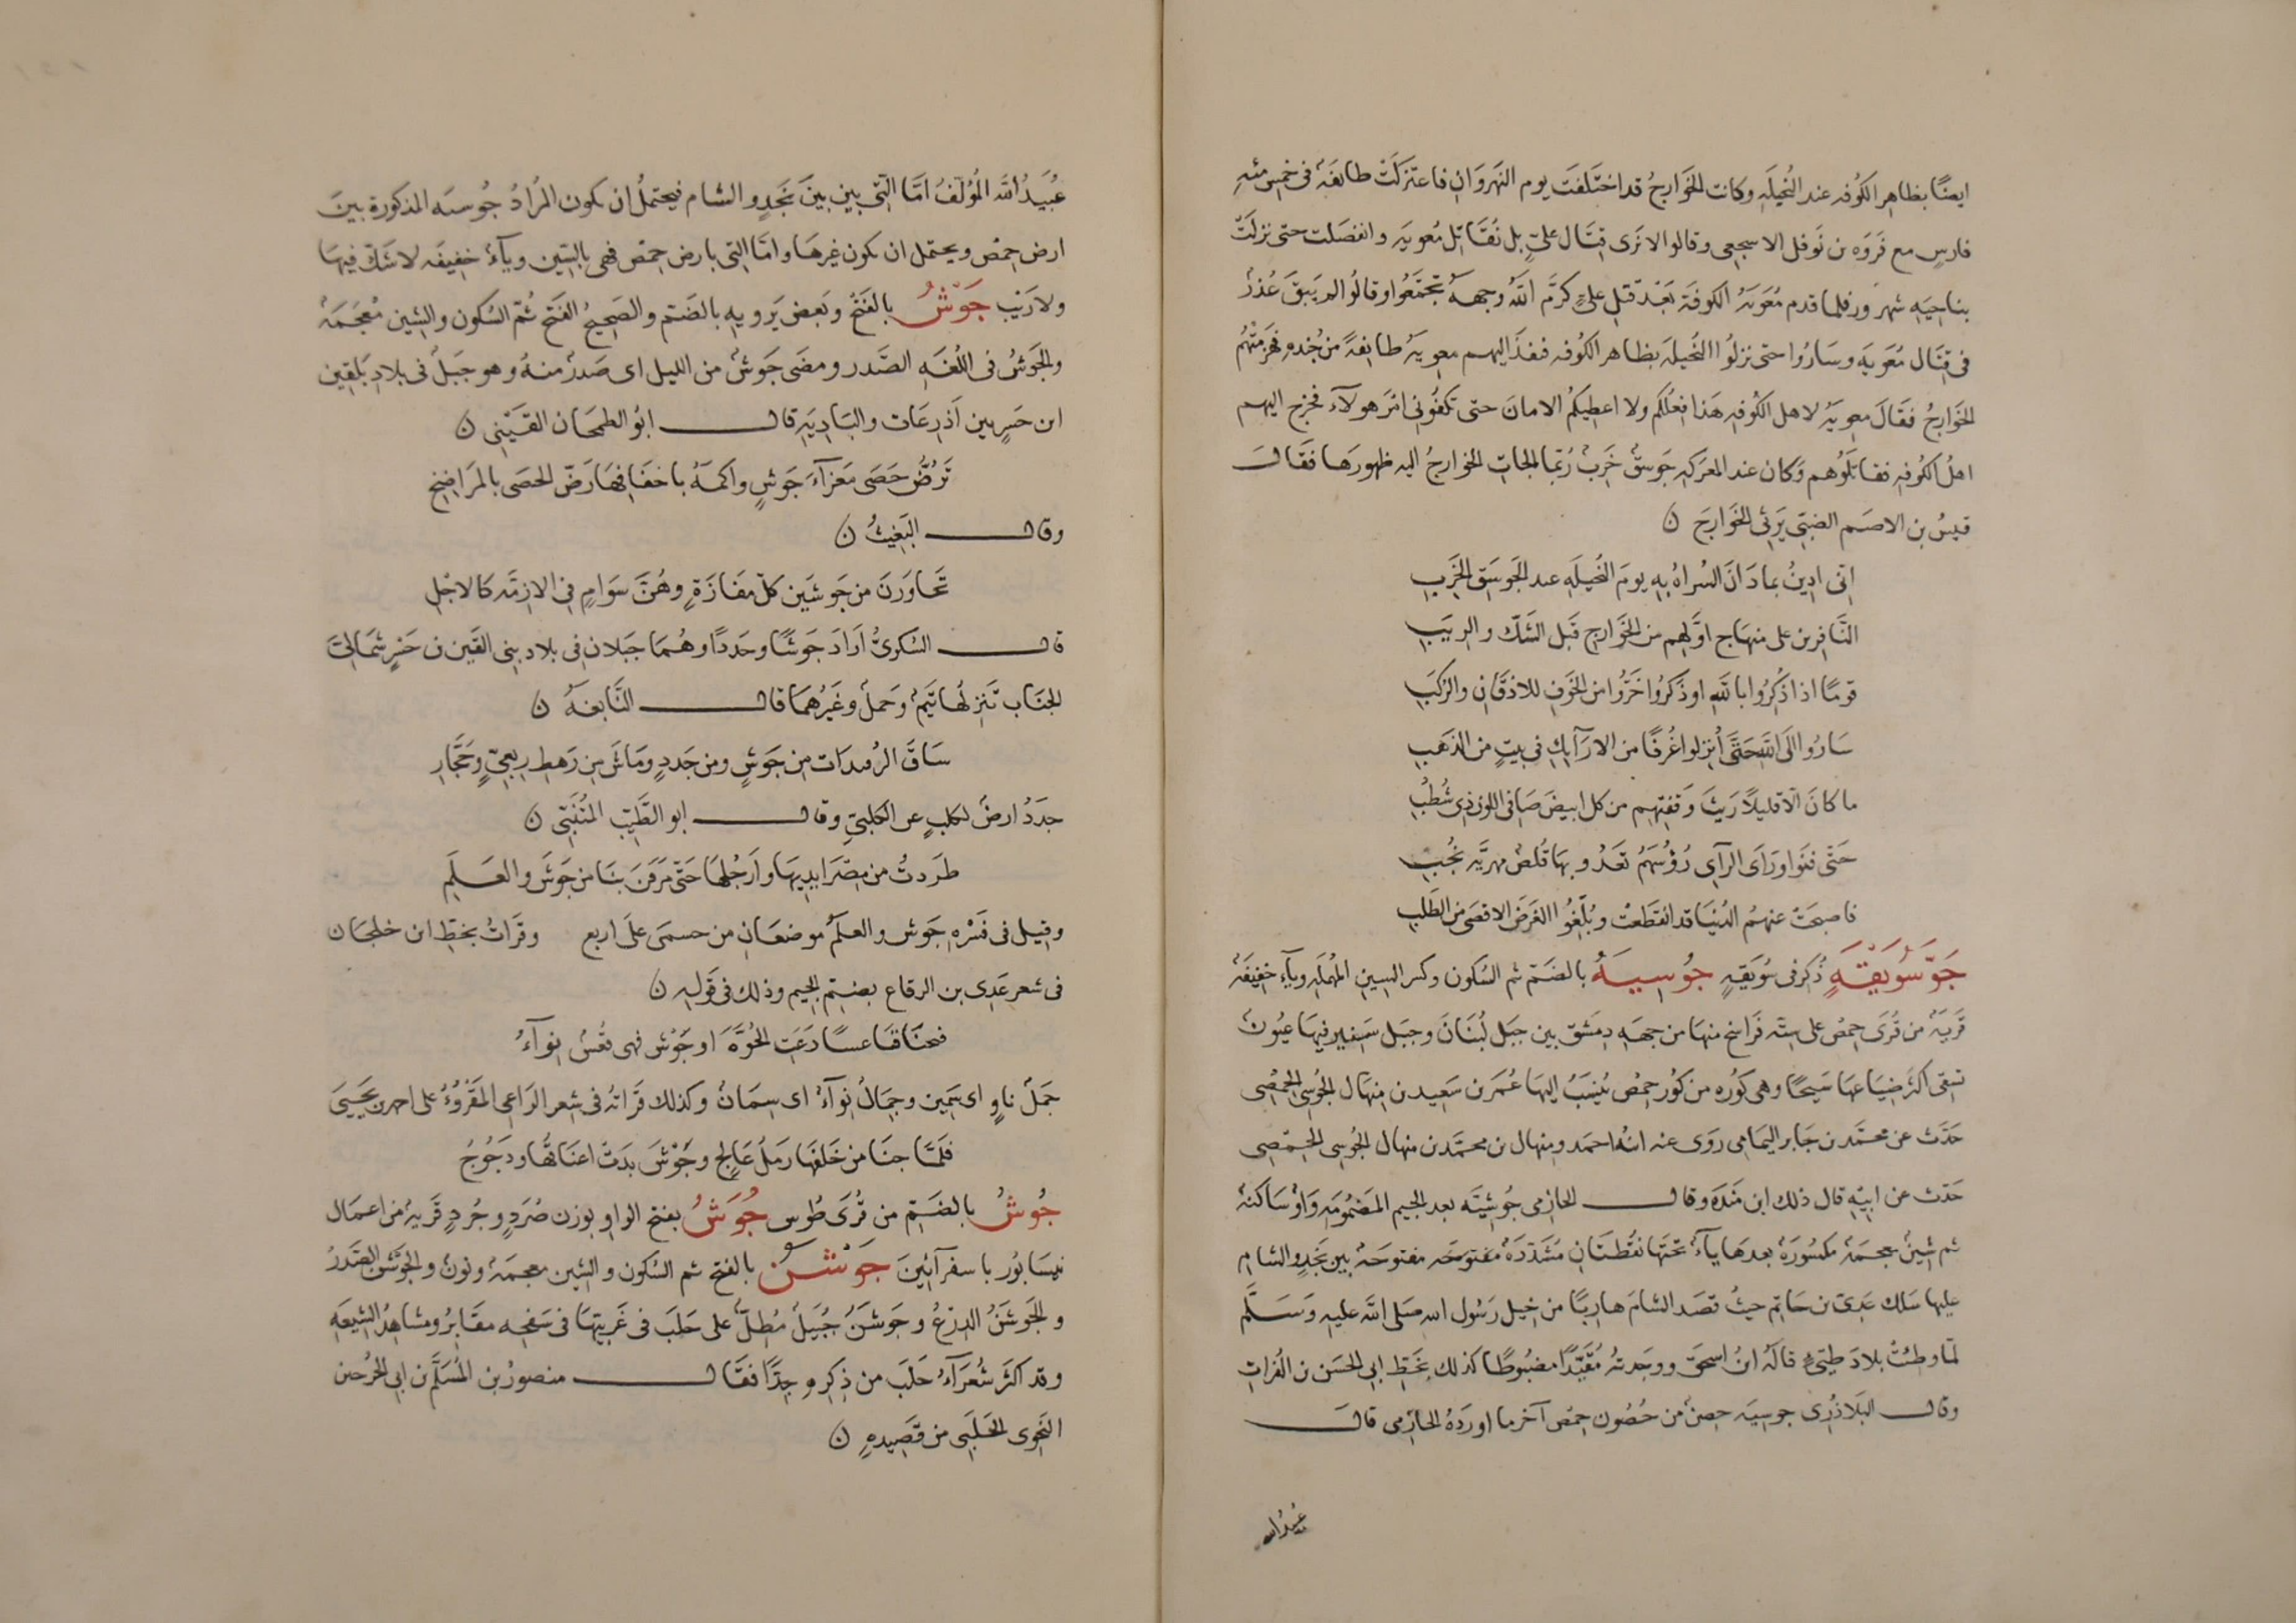 ايضًا بظاهر الكُوفه عند النُخيلَهِ وكانت الخَوَارجُ قد اختَلفَت يوم النَهرَوَانِ فاعتزَلَتْ طايفَةٌ فى خمس مئهِ
فارسٍ مع فَروَه بن نَوفل الاسجعى وقالوا لا نَرى قِتَال علىٍّ بل نُقَاتل مُعويَه وانفصَلت حتى نزلَتْ
بناحيَهِ شهرزور فلما قدم مُعَويَهُ الكوفَة بَعْدَ قتلِ علىٍ كرَّم اللّهُ وجهـهُ تجمَّعُوا وقالُوا لم يَبقَ عُذرٌ
فى قتَال مُعَويَه وسَارُوا حتى نزلُوا النُخيلَهَ بظاهر الكُوفه فنفذَ اليهم معويهُ طايفةً من جُندهِ فهَزمتْهُم
الخَوَارجُ فقَالَ معويَهُ لاهل الكُوفه هَذا فعلُكم ولا اعطيكمُ الامانَ حتى تكفُونى امرَ هولآءِ فخرج اليهم
اهلُ الكُوفه فقاتلَوُهم وَكان عند المعرَكهِ جَوسَقٌ خَربٌ رُبّما الجاتِ الخوارجُ اليه ظهورَها فقَالَ
قيسُ بن الاصَم الضبّى يَرثى الخَوارجَ ن
انّى ادينُ بما دَانَ الشراهُ بِهِ يومَ النُخيلَهِ عند الجَوسَقِ الخَرِبِ
النَّافرين على منهَاجِ اوَّلهِم من الخَوَارجِ قَبل الشَكّ والريَبِ
قومًا اذا ذُكِّرُوا باللّهِ او ذَكَرُوا خَرُّوا من الخَوفِ للاذقَانِ والرُكَبِ
سَارُوا الَى اللّهِ حَتَى أُنزلوا غُرَفًا من الارَآيكِ فى بيتٍ من الذهَبِ
ما كانَ الّا قليلًا رَيثَ وَقفتِهم من كل ابيضَ صَافى اللون ذى شُطُبِ
حَتّى فنَوا ورَاى الرآى رُؤسَهمُ تَعدُو بهَا قُلصٌ مهريَّه نُجُبِ
فاصبحَتْ عنهمُ الدُنيَا قد انقَطعَتْ وبُلّغُوا الغَرَضَ الاقصَى من الطَلبِ
جَوّسُوَيْقَةٍ ذُكر فى سُوَيقهٍ جُوسِيَهُ بالضَمّ ثم السُكون وكسر السِينِ المُهملَهِ ويآءٍ خفيفَهٌ
قَريَهٌ من قُرَى حِمصَ على ستّه فَرَاسخ منهَا من جهَهِ دِمَشق بين جبَل لُبنَانَ وجبَل سَنيرٍ فيهَا عيُونٌ
تسَقى اكثَر ضيَاعهَا سَيحًا وهى كُوره من كُورِ حمصَ يُنسَبُ اليهَا عُمَر بن سَعِيد بن منهَال الجُوسِى الحِمْصِى
حَدَث عن محمَّد بن جَابر اليمَامى روَى عنه ابنُه احمَد ومنهال بن محمَّد بن منهال الجُوسِى الحِمصِى
حَدّث عن ابيَهِ قال ذلك ابن مَندَه وقال الحازمى جُوشِيَّه بعد الجيم المضمُومَه وَاوٌ سَاكنهٌ
ثم شِينٌ معجمَهٌ مكسُورَهٌ بعدهَا يآءٌ تحتهَا نقُطتَانِ مشَدّدَهٌ مفتوحَهٌ مفتوحَهٌ بين نَجَدٍ والشامِ
عليهَا سَلك عَدىّ بن حَاتمٍ حيثُ قصَد الشامَ هاربًا من خيل رَسُول اللهِ صَلى اللّه عليهِ وَسَلَّمَ
لمّا وطئتْ بلادَ طيّئٍ قالَهُ ابنُ اسحقَ ووجَدتهُ مُقيّدًا مضبُوطًا كذلك بخَطِّ ابى الحسَن بن الفُراتِ
وقال البَلَاذُرِى جوسيَه حِصنٌ من حُصُونِ حِمصَ آخر ما اورَدهُ الحازِمى قالَ
عُبَيدُ اللّه
عُبَيدُ اللّهِ المُؤلَّفُ امّا الّتى بين بينَ نَجَدٍ والشام فيحتملُ ان يكون المُرادُ جُوسيَه المذكورةِ بينَ
ارض حِمصَ ويحتمل ان يكون غيرهَا وامّا التى بارض حِمصَ فهى بالسّين ويآءٌ خفيفَه لا شكّ فيهَا
ولا رَيْبَ جَوْشُ بالفَتْحِ وبَعضٌ يَرويهِ بالضَمّ والصَحِيحُ الفَتح ثُمّ السُكون والشِين مُعجَمَهٌ
والجَوشُ فى اللُغَهِ الصَّدر ومضَى جَوشٌ من الليل اى صَدرٌ منهُ وهو جبَلٌ فى بلادِ بَلقين
ابن جَسرٍ بين اَذرعَات والبَادِيَهِ قال ابُو الطمحَان القَيْنى ن
تَرُضُّ حَصَى مَعزآءَ جَوشٍ واكمَهُ باخفَافهَا رَضَّ الحصَى بالمرَاضِخِ
وقال البَعِيثُ ن
تَجاوَزنَ من جَوشَين كلّ مفَازَةٍ وهُنّ سَوَامٍ فِى الازمّه كالاجْلِ
قال السُكرىُّ ارَادَ جَوشًا وحَدَدًا وهُمَا جَبَلان فِى بلادِ بنى القَين بن جَسرٍ شمَالىَّ
الجنَاب تَنزلُها تَيمٌ وحَملٌ وغيَرُهمَا قال النَّابغَهُ ن
سَاقَ الرُفيدَات من جَوشٍ ومن جَددٍ ومَاشَ من رَهطِ رِبعىٍّ وحَجّارِ
جدَدُ ارضٌ لكلبٍ عن الكلبىِّ وقال ابو الطَّيّب المُتنَبّى ن
طَردتُ من مِصْرَ ايديهَا وارَجُلهَا حَتّى مَرَقنَ بنَا من جَوشَ والعَلَمِ
وقيل فى فَسْرهِ جَوش والعلَمُ موضعَانِ من حسمَى علَى اربع وقرَاتُ بخطِّ ابن خلجَان
فى شعرِ عَدِى بن الرقاع بضمِّ الجيم وذلك فى قَولهِ ن
فسحنَا قنَاعسًا رَعَتِ الحُوَّهَ او جُوْشَ فهى قعُسٌ نِوآءُ
جَملٌ ناوٍ اى سَمِين وجِمَالٌ نِوآءٌ اى سِمَانٌ وكذلك قرَاتهُ فى شِعر الرَاعى المَقرُوءُ على احمد بن يَحيىَ
فلمّا حبَا من خَلفهَا رمَلُ عَالِجٍ وجُوْشَ بدَتْ اعنَاقُها ودَجُوجُ
جُوشُ بالضَمّ من قُرَى طُوس جُوَشُ بفتح الواو بوزن صُرَدٍ وجُردٍ قريهٌ من اعمَال
نَيسَابُور باسفرآيِينَ جَوْشَن بالفتح ثم السُكون والشِين معجمَهٌ ونونٌ والجَوشَن الصَّدرُ
والجَوشَنُ الدِرْعُ وجَوشَنُ جُبَيلٌ مُطِلٌّ على حَلَبَ فى غَربيّهَا فى سَفحِه مقَابرُ ومشاهِدُ الشِيعَهِ
وقد اكثَرَ شُعرَآءُ حَلَبَ من ذِكرهِ جِدًّا فقَال منصورُ بن المُسَلَّم بن ابى الخُرْجَين
النَّحوِى الحَلَبِى من قصَيدهٍ ن